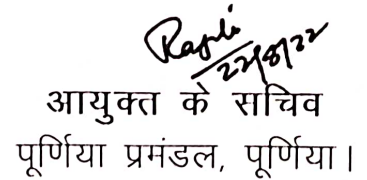 22/8/22
आयुक्त के सचिव
पूर्णिया प्रमंडल, पूर्णिया।